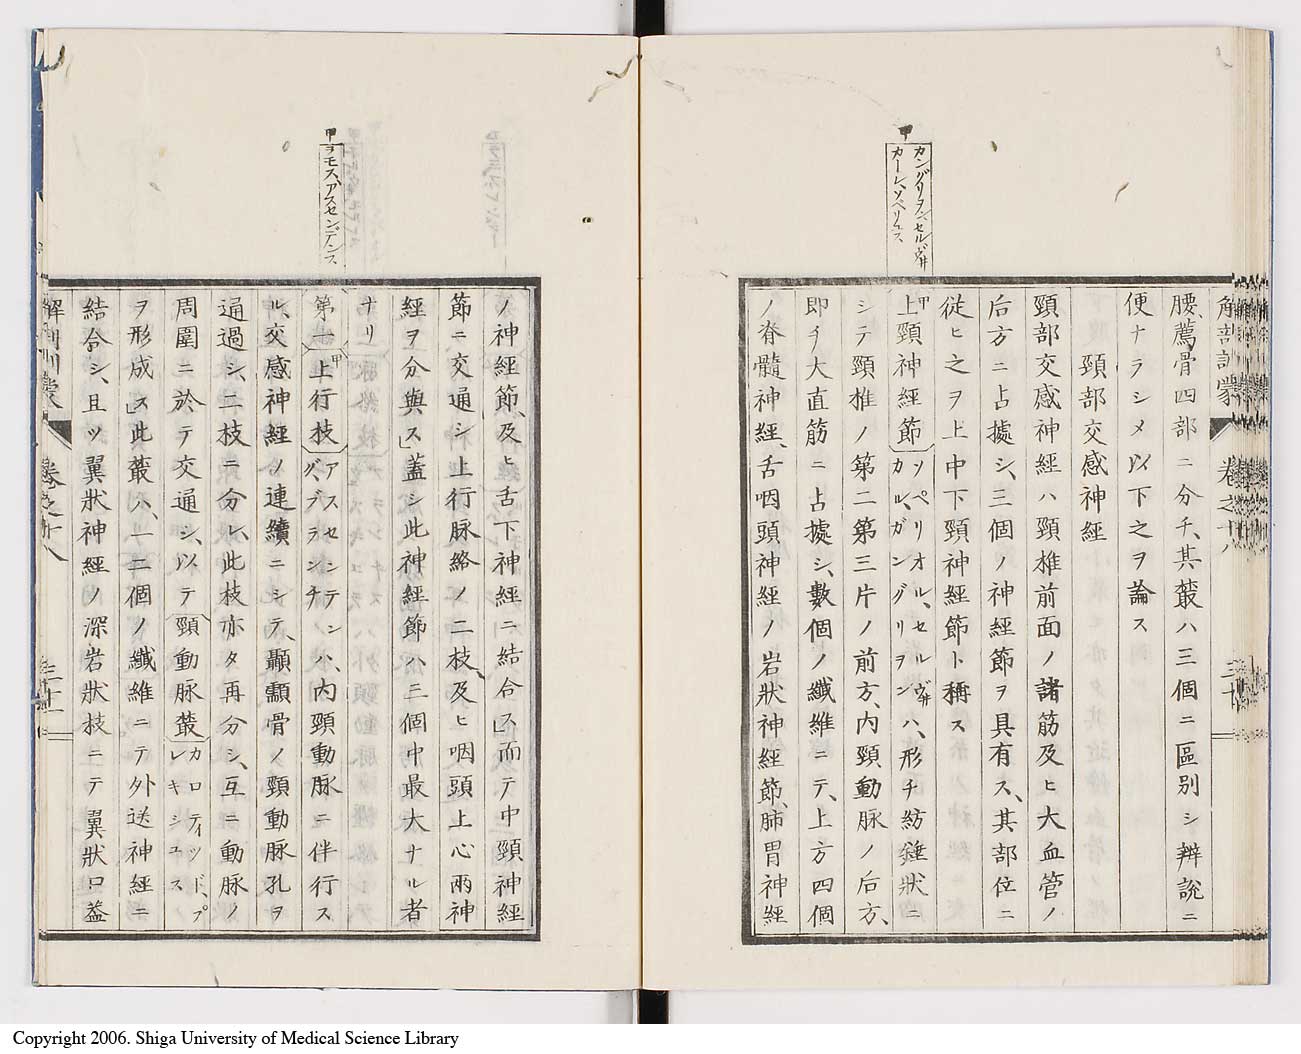 甲
カングリヲン、セルヴ井
カーレ、ソペリュス
解剖訓蒙
卷之十八
三十
腰、薦骨四部ニ分チ、其叢ハ三個ニ區別シ辨説ニ
便ナラシメ以下之ヲ論ス
頸部交感神經
頸部交感神經ハ頸椎前面ノ諸筋及ヒ大血管ノ
后方ニ占據シ、三個ノ神經節ヲ具有ス、其部位ニ
從ヒ之ヲ上中下頸神經節ト稱ス
甲
上頸神經節
ソペリオル、セルヴ井
カル、ガングリヲン
ハ、形チ紡錘狀ニ
シテ頸椎ノ第二第三片ノ前方、内頸動脉ノ后方、
即チ大直筋ニ占據シ、數個ノ纖維ニテ、上方四個
ノ脊髓神經、舌咽頭神經ノ岩狀神經節、肺胃神經
甲
ヲモス、アスセンデンス
ノ神經節、及ヒ舌下神經ニ結合ス」而テ中頸神經
節ニ交通シ上行脉絡ノ二枝、及ヒ咽頭上心兩神
經ヲ分與ス」蓋シ此神經節ハ三個中最大ナル者
ナリ
甲
第一上行枝
アスセンテン
グ、ブランチ
ハ、内頸動脉ニ伴行ス
ル、交感神經ノ連續ニシテ、顳顬骨ノ頸動脉孔ヲ
通過シ、二枝ニ分レ、此枝亦タ再分シ、互ニ動脉ノ
周圍ニ於テ交通シ、以テ頸動脉叢
カロティッド、プ
レキシュス
ヲ形成ス」此叢ハ、一二個ノ纖維ニテ外送神經ニ
結合シ、且ツ翼狀神經ノ深岩狀枝ニテ翼狀口蓋
解剖訓蒙
卷之十八